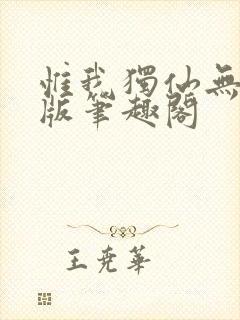 惟我獨仙無
版筆趣閣
王尭華